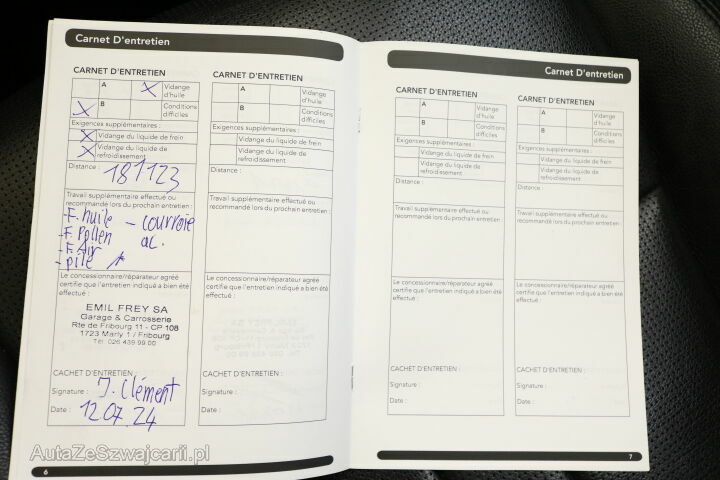 Carnet D'entretien
CARNET D'ENTRETIEN
A
X
Vidange d'huile
X
B
Conditions difficiles
Exigences supplémentaires :
X
Vidange du liquide de frein
X
Vidange du liquide de refroidissement
Distance :
181123
Travail supplémentaire effectué ou
recommandé lors du prochain entretien :
-F.huile - courroie
-F.Pollen ac.
-F.Air
-pile
Le concessionnaire/réparateur agréé
certifie que l'entretien indiqué a bien été
effectué :
EMIL FREY SA
Garage & Carrosserie
Rte de Fribourg 11 - CP 108
1723 Marly 1 / Fribourg
Tél. 026 439 99 00
CACHET D'ENTRETIEN :
Signature : J. Clément
Date : 12.07.24
6
CARNET D'ENTRETIEN
A
Vidange d'huile
B
Conditions difficiles
Exigences supplémentaires :
Vidange du liquide de frein
Vidange du liquide de refroidissement
Distance :
Travail supplémentaire effectué ou
recommandé lors du prochain entretien :
Le concessionnaire/réparateur agréé
certifie que l'entretien indiqué a bien été
effectué :
CACHET D'ENTRETIEN :
Signature :
Date :
Carnet D'entretien
CARNET D'ENTRETIEN
A
Vidange d'huile
B
Conditions difficiles
Exigences supplémentaires :
Vidange du liquide de frein
Vidange du liquide de refroidissement
Distance :
Travail supplémentaire effectué ou
recommandé lors du prochain entretien :
Le concessionnaire/réparateur agréé
certifie que l'entretien indiqué a bien été
effectué :
CACHET D'ENTRETIEN :
Signature :
Date :
CARNET D'ENTRETIEN
A
Vidange d'huile
B
Conditions difficiles
Exigences supplémentaires :
Vidange du liquide de frein
Vidange du liquide de refroidissement
Distance :
Travail supplémentaire effectué ou
recommandé lors du prochain entretien :
Le concessionnaire/réparateur agréé
certifie que l'entretien indiqué a bien été
effectué :
CACHET D'ENTRETIEN :
Signature :
Date :
7
AutaZeSzwajcarii.pl